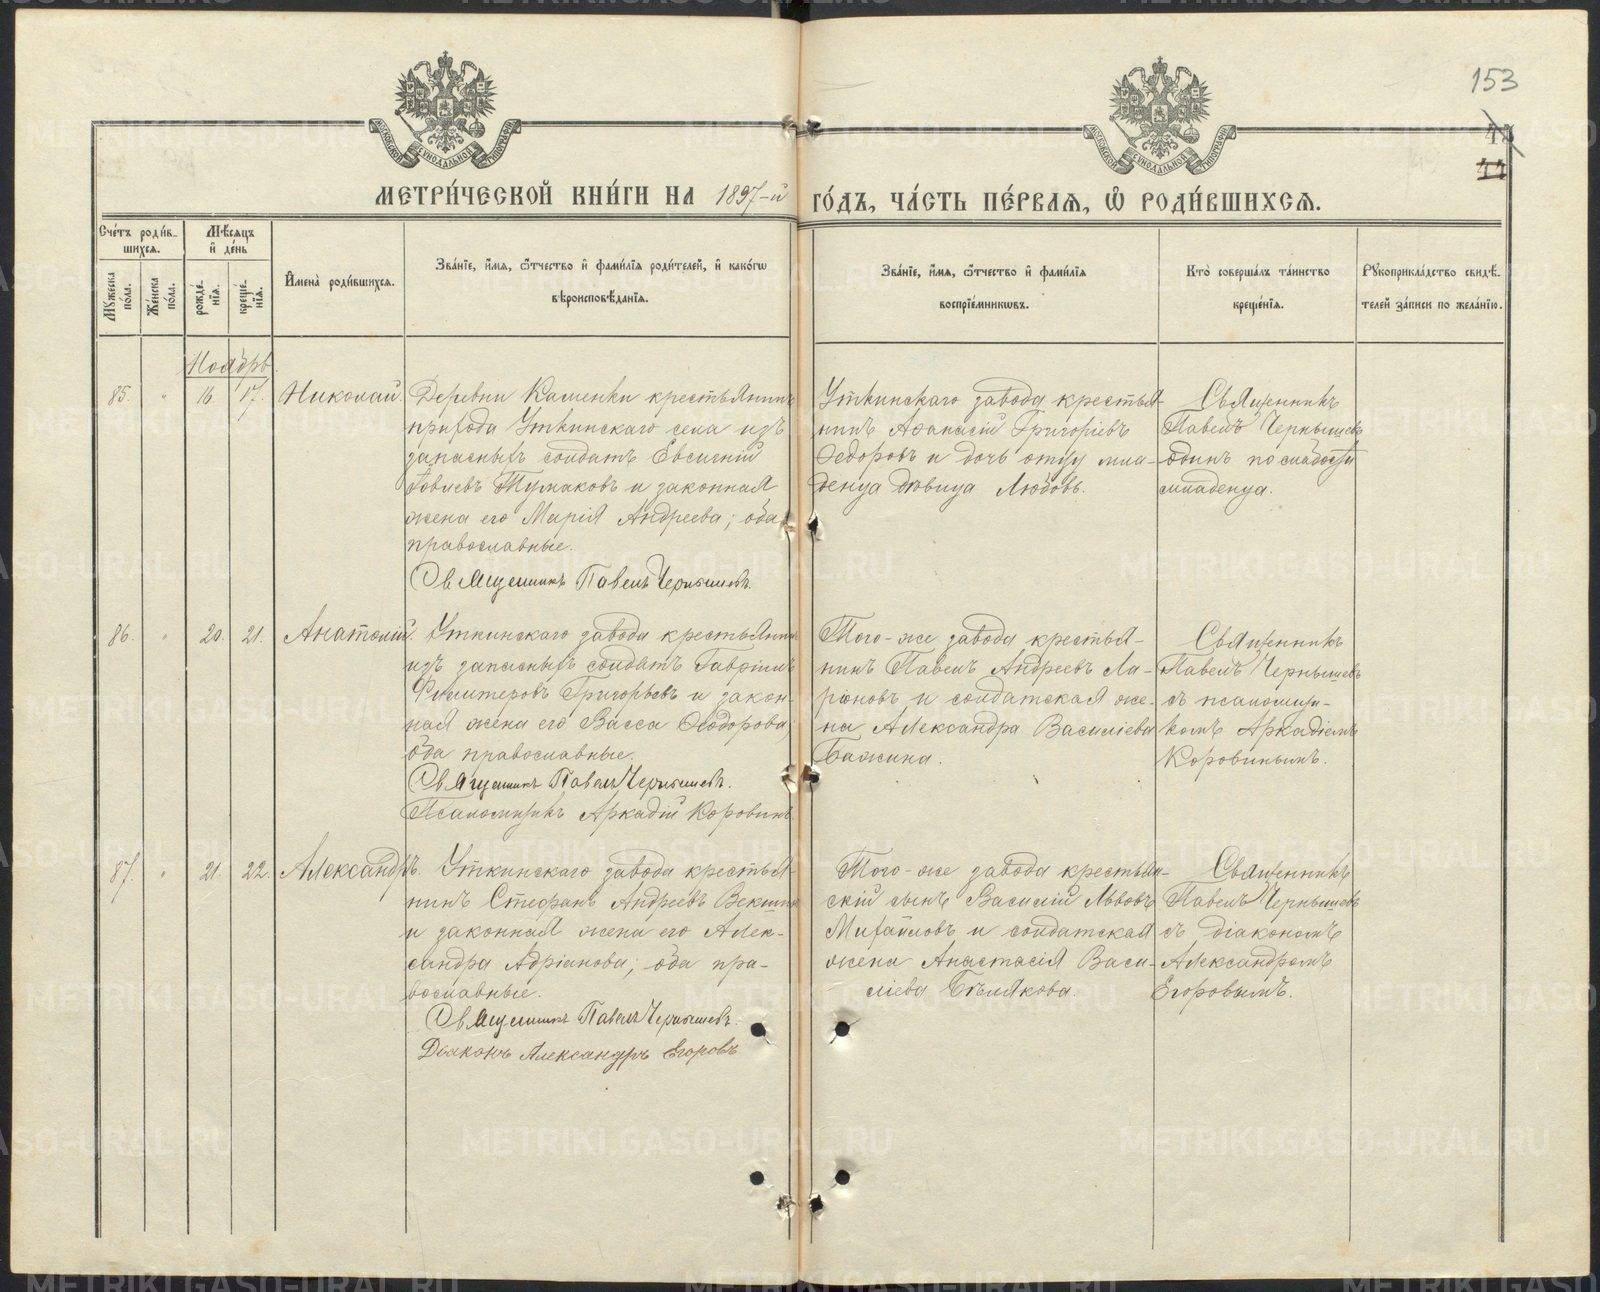 153
44
МЕТРИ́ЧЕСКОЙ КНИ́ГИ НА 1897-й ГО́ДЪ, ЧА́СТЬ ПЕ́РВАЯ, Ѿ РОДИ́ВШИХСЯ.
Сче́тъ роди́в-
шихся.
Мѣ́сяцъ
и҆ де́нь
Мꙋ́жеска по́ла.
Же́нска по́ла.
рожде́нїя.
креще́нїя.
И҆мена̀ роди́вшихся.
Зва́нїе, и҆́мя, ѻ҆́тчество и҆ фами́лїя роди́телей, и҆ како́гѡ
вѣроисповѣ́данїя.
Зва́нїе, и҆́мя, ѻ҆́тчество и҆ фами́лїя
воспрїе́мникѡвъ.
Кто̀ соверша́лъ та́инство
креще́нїя.
Рꙋкоприкла́дство свидѣ́-
телей за́писи по жела́нїю.
Ноябрь
85. " 16. 17. Николай.
Деревни Каменки крестьянинъ
прихода Уткинскаго села изъ
запасныхъ солдатъ Евсигній
Тумаковъ и законная
жена его Марія Андреева; оба
православные.
Священникъ Павелъ Чернышевъ.
Уткинскаго завода крестья-
нинъ Аѳанасій Григоріевъ
Ѳедоровъ и дочь отцу мла-
денца дѣвица Любовь.
Священникъ
Павелъ Чернышевъ
одинъ по слабости
младенца.
86. " 20. 21. Анатолій.
Уткинскаго завода крестьянинъ
изъ запасныхъ солдатъ Гавріилъ
Филитеровъ Григорьевъ и закон-
ная жена его Васса Ѳеодорова,
оба православные.
Священникъ Павелъ Чернышевъ.
Псаломщикъ Аркадій Коровинъ
Того-же завода крестья-
нинъ Павелъ Андреевъ Ла-
ріоновъ и солдатская же-
на Александра Василіева
Бажина.
Священникъ
Павелъ Чернышевъ
съ псаломщи-
комъ Аркадіемъ
Коровинымъ.
87. " 21. 22. Александръ.
Уткинскаго завода крестья-
нинъ Стефанъ Андреевъ Векшинъ
и законная жена его Алек-
сандра Адріанова; оба пра-
вославные.
Священникъ Павелъ Чернышевъ.
Діаконъ Александръ Егоровъ
Того-же завода крестьян-
скій сынъ Василій Львовъ
Михайловъ и солдатская
жена Анастасія Васи-
ліева Бѣлякова.
Священникъ
Павелъ Чернышевъ
съ діакономъ
Александромъ
Егоровымъ.
METRIKI.GASO-URAL.RU